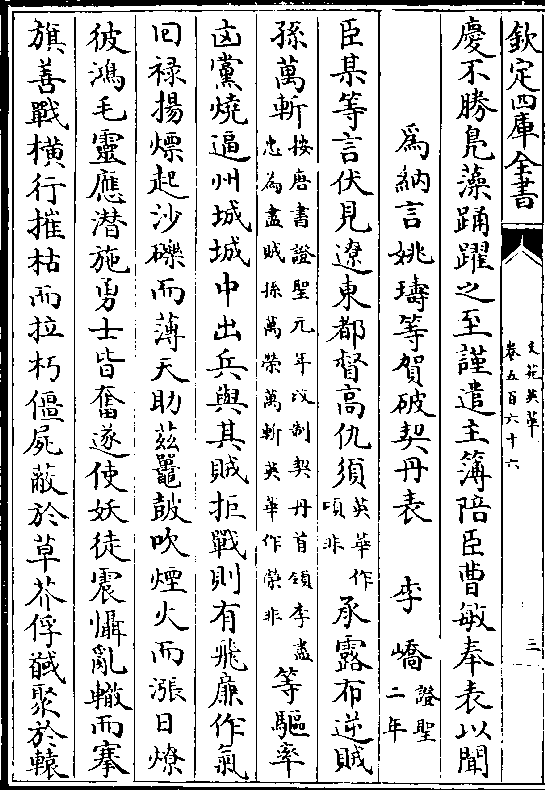 欽定四庫全書
文苑英華
卷五百六十六
三
慶不勝鳧藻踊躍之至謹遣主簿陪臣曹敏奉表以聞
為納言姚璹等賀破契丹表　李嶠證聖二年
臣某等言伏見遼東都督高仇須英華作項非承露布逆賊
孫萬斬按唐書證聖元年改制契丹首領李盡忠為盡賊孫萬榮萬斬英華作榮非等驅率
凶黨燒逼州城城中出兵與其賊拒戰則有飛廉作氣
囘禄揚熛起沙礫而薄天助茲鼉鼓吹煙火而漲日燎
彼鴻毛靈應潜施勇士皆奮遂使妖徒震慴亂轍而搴
旗善戰橫行摧枯而拉朽僵屍蔽於草芥俘馘聚於轅